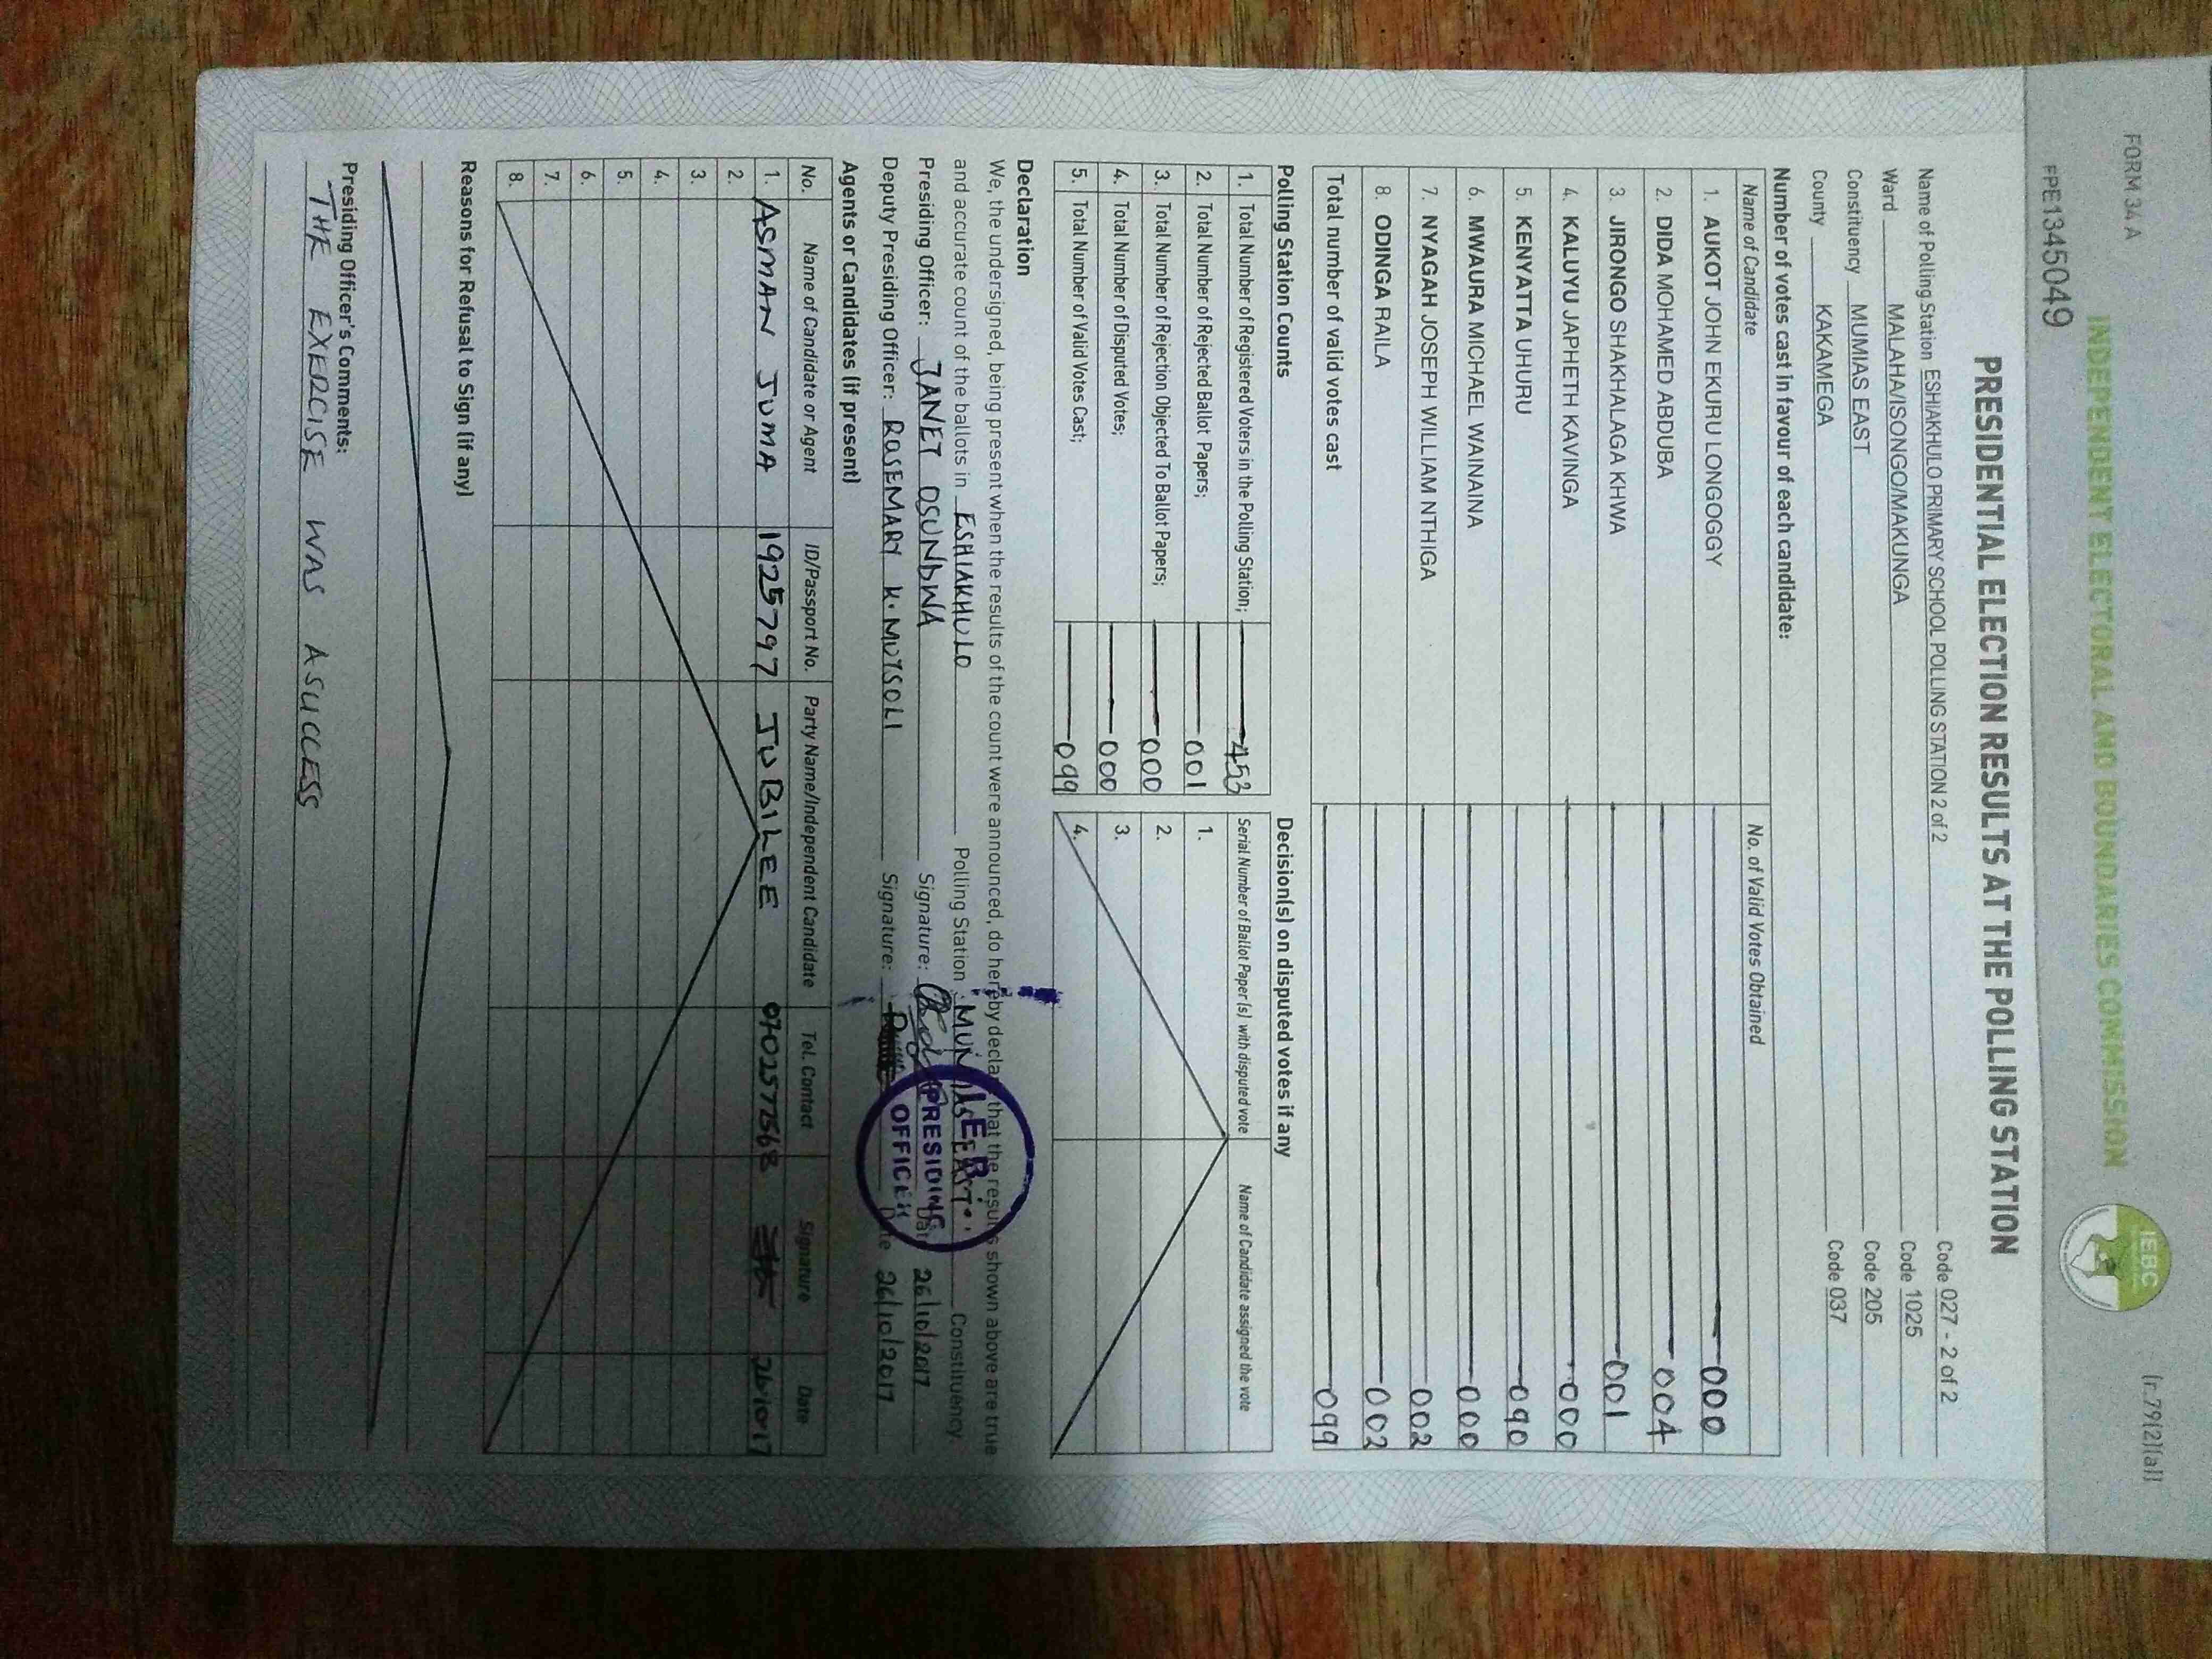 FORM 34 A
(r.79(2)(a))
INDEPENDENT ELECTORAL AND BOUNDARIES COMMISSION
IEBC
FPE1345049
PRESIDENTIAL ELECTION RESULTS AT THE POLLING STATION
Name of Polling Station ESHIAKHULO PRIMARY SCHOOL POLLING STATION 2 of 2 Code 027 - 2 of 2
Ward MALAHA/ISONGO/MAKUNGA Code 1025
Constituency MUMIAS EAST Code 205
County KAKAMEGA Code 037
Number of votes cast in favour of each candidate:
Name of Candidate No. of Valid Votes Obtained
1. AUKOT JOHN EKURU LONGOGGY 000
2. DIDA MOHAMED ABDUBA 004
3. JIRONGO SHAKHALAGA KHWA 001
4. KALUYU JAPHETH KAVINGA 000
5. KENYATTA UHURU 090
6. MWAURA MICHAEL WAINAINA 000
7. NYAGAH JOSEPH WILLIAM NTHIGA 002
8. ODINGA RAILA 002
Total number of valid votes cast 099
Polling Station Counts Decision(s) on disputed votes if any
1. Total Number of Registered Voters in the Polling Station; 453 Serial Number of Ballot Paper (s) with disputed vote Name of Candidate assigned the vote
2. Total Number of Rejected Ballot Papers; 001 1.
3. Total Number of Rejection Objected To Ballot Papers; 000 2.
4. Total Number of Disputed Votes; 000 3.
5. Total Number of Valid Votes Cast; 099 4.
Declaration
We, the undersigned, being present when the results of the count were announced, do hereby declare that the results shown above are true
and accurate count of the ballots in ESHIAKHULO Polling Station MUMIAS EAST Constituency
Presiding Officer: JANET OSUNDWA Signature: Date 26/10/2017
Deputy Presiding Officer: ROSEMARY K. MUTSOLI Signature: Date 26/10/2017
PRESIDING
OFFICER
Agents or Candidates (if present)
No. Name of Candidate or Agent ID/Passport No. Party Name/Independent Candidate Tel. Contact Signature Date
1. ASMAN JUMA 1925797 JUBILEE 0702572568
2.
3.
4.
5.
6.
7.
8.
Reasons for Refusal to Sign (if any)
Presiding Officer's Comments:
THE EXERCISE WAS A SUCCESS